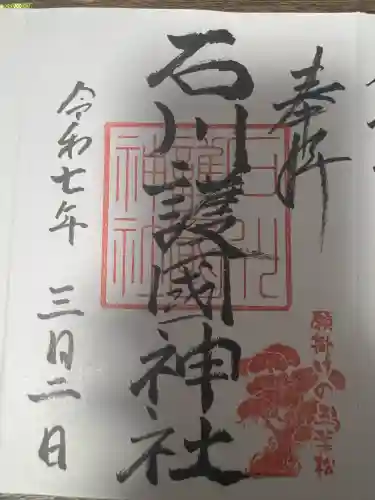 奉拝
石川護國神社
令和七年 三月二日
石川護國神社
願掛け